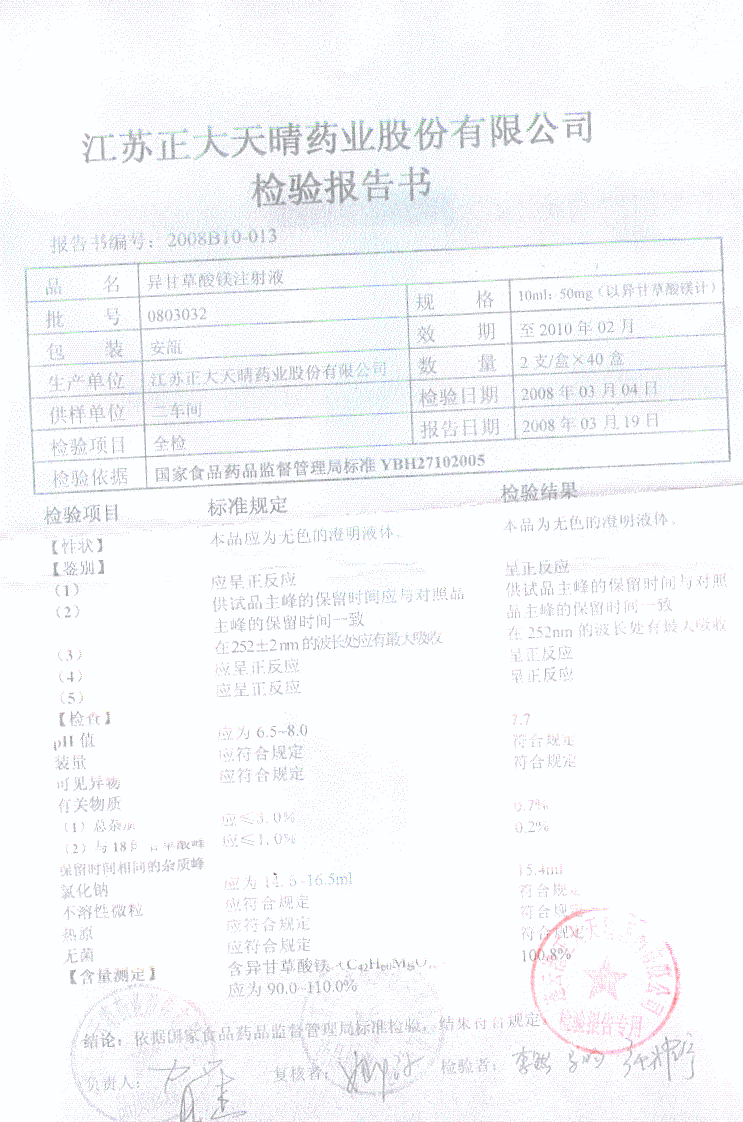 江苏正大天晴药业股份有限公司
检验报告书
报告书编号：2008B10-013
品 名 异甘草酸镁注射液
批 号 0803032 规 格 10ml：50mg（以异甘草酸镁计）
包 装 安瓿 效 期 至 2010 年 02 月
生产单位 江苏正大天晴药业股份有限公司 数 量 2 支/盒×40 盒
供样单位 二车间 检验日期 2008 年 03 月 04 日
检验项目 全检 报告日期 2008 年 03 月 19 日
检验依据 国家食品药品监督管理局标准 YBH27102005
检验项目 标准规定 检验结果
【性状】 本品应为无色的澄明液体。 本品为无色的澄明液体。
【鉴别】
（1） 应呈正反应 呈正反应
（2） 供试品主峰的保留时间应与对照品 供试品主峰的保留时间与对照
主峰的保留时间一致 品主峰的保留时间一致
（3） 在252±2 nm 的波长处应有最大吸收 在 252nm 的波长处有最大吸收
（4） 应呈正反应 呈正反应
（5） 应呈正反应 呈正反应
【检查】
pH 值 应为 6.5~8.0 7.7
装量 应符合规定 符合规定
可见异物 应符合规定 符合规定
有关物质
（1）总杂 应≤3.0% 0.7%
（2）与 18 甘草酸峰 应≤1.0% 0.2%
保留时间相同的杂质峰
氯化钠 应为 14. ~16.5ml 15.4ml
不溶性微粒 应符合规定 符合规
热原 应符合规定 符合规
无菌 应符合规定 符合规定
【含量测定】 含异甘草酸镁 100.8%
应为 90.0~110.0%
结论：依据国家食品药品监督管理局标准检验，结果符合规定
检验报告专用
负责人： 复核者： 检验者：